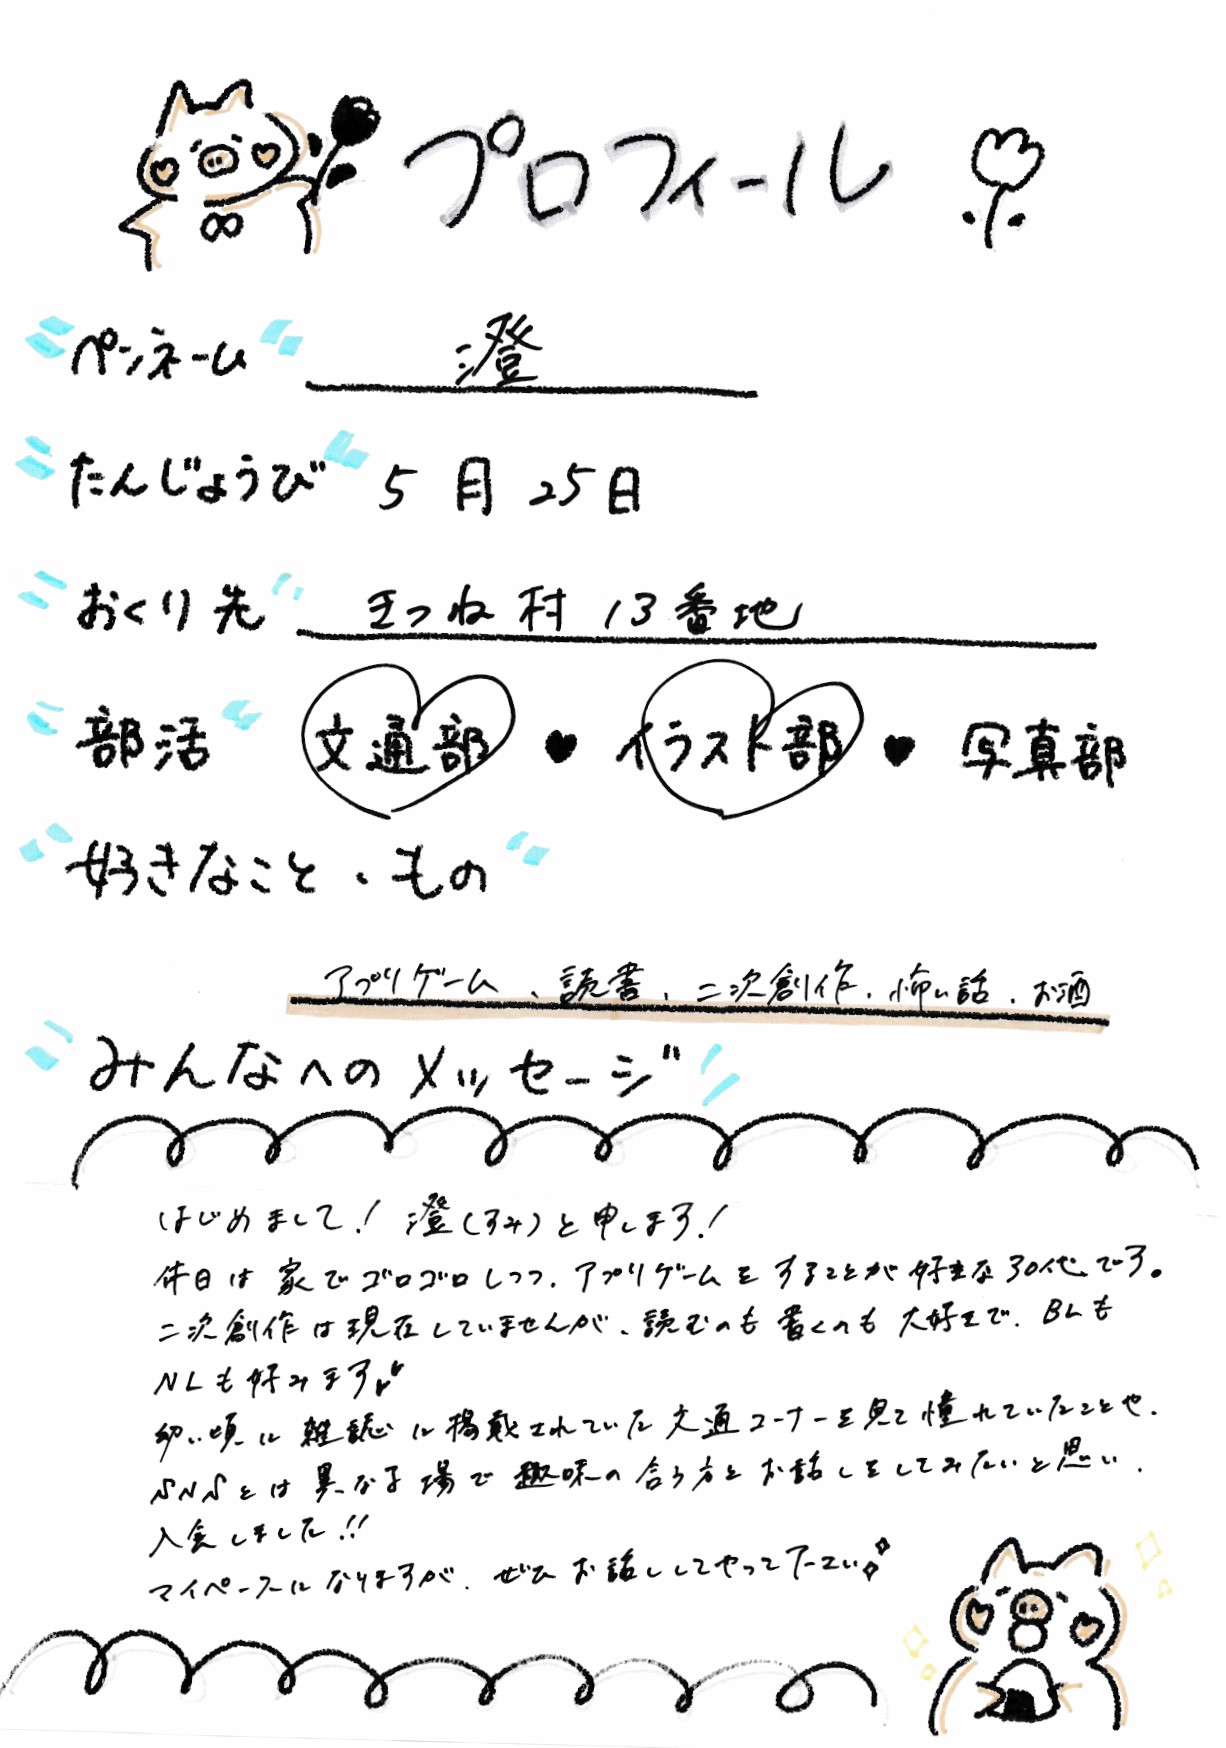 プロフィール
ペンネーム 澄
たんじょうび 5月25日
おくり先 きつね村13番地
部活 文通部 ♥ イラスト部 ♥ 写真部
好きなこと、もの
アプリゲーム、読書、二次創作、怖い話、お酒
みんなへのメッセージ
はじめまして!澄(すみ)と申します!
休日は家でゴロゴロしつつ、アプリゲームをすることが好きな30代です。
二次創作は現在していませんが、読むのも書くのも大好きで、BLも
NLも好みます
幼い頃に雑誌に掲載されていた文通コーナーを見て憧れていたことや、
SNSとは異なる場で趣味の合う方とお話しをしてみたいと思い、
入会しました!!
マイペースになりますが、ぜひお話ししてやって下さい